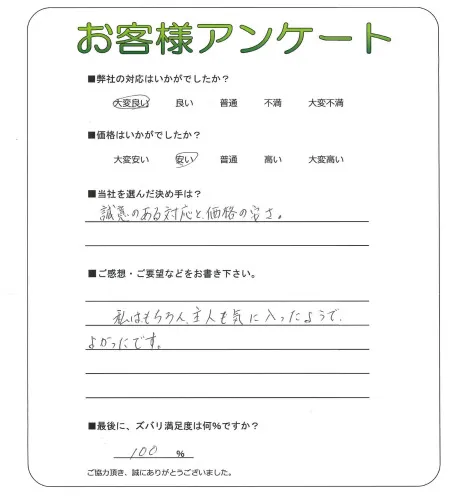 お客様アンケート
■弊社の対応はいかがでしたか？
大変良い 良い 普通 不満 大変不満
■価格はいかがでしたか？
大変安い 安い 普通 高い 大変高い
■当社を選んだ決め手は？
誠意のある対応と、価格の安さ。
■ご感想・ご要望などをお書き下さい。
私はもちろん、主人も気に入ったようで、
よかったです。
■最後に、ズバリ満足度は何％ですか？
100 ％
ご協力頂き、誠にありがとうございました。